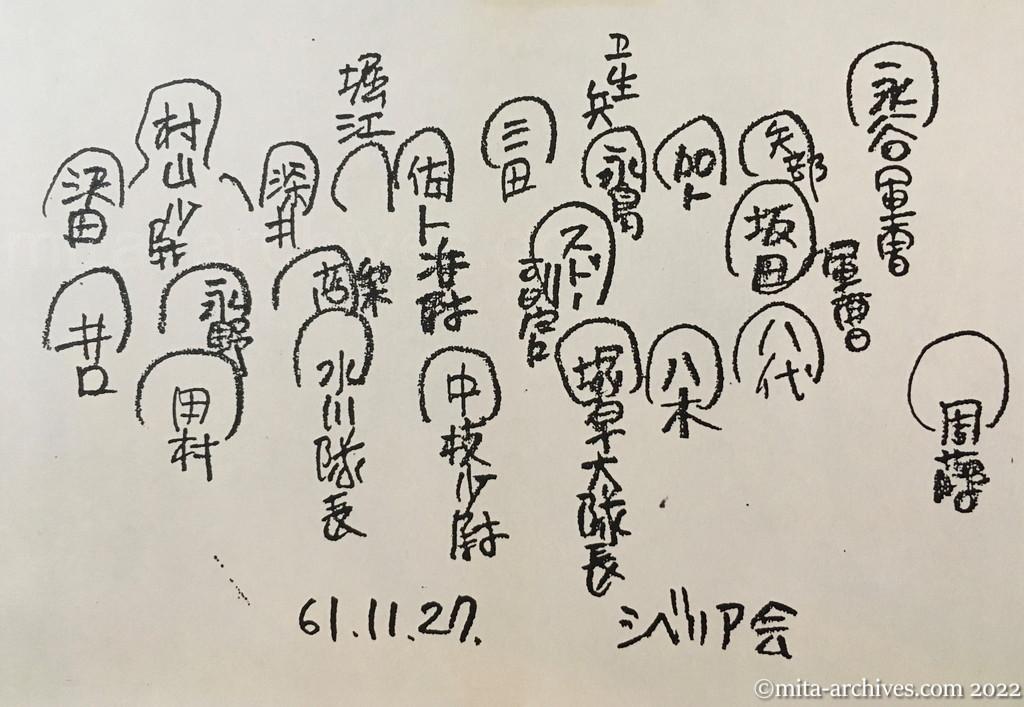 堀江
卫生兵
永谷軍曹
村山少尉
梁田
深井
佐ト准尉
三田
永島
加ト
矢部
坂田
軍曹
スドー
永野
井口
田村
水川隊長
中枝少尉
大隊長
八木
八代
周藤
61.11.27.
シベリア会
©mita-archives.com 2022